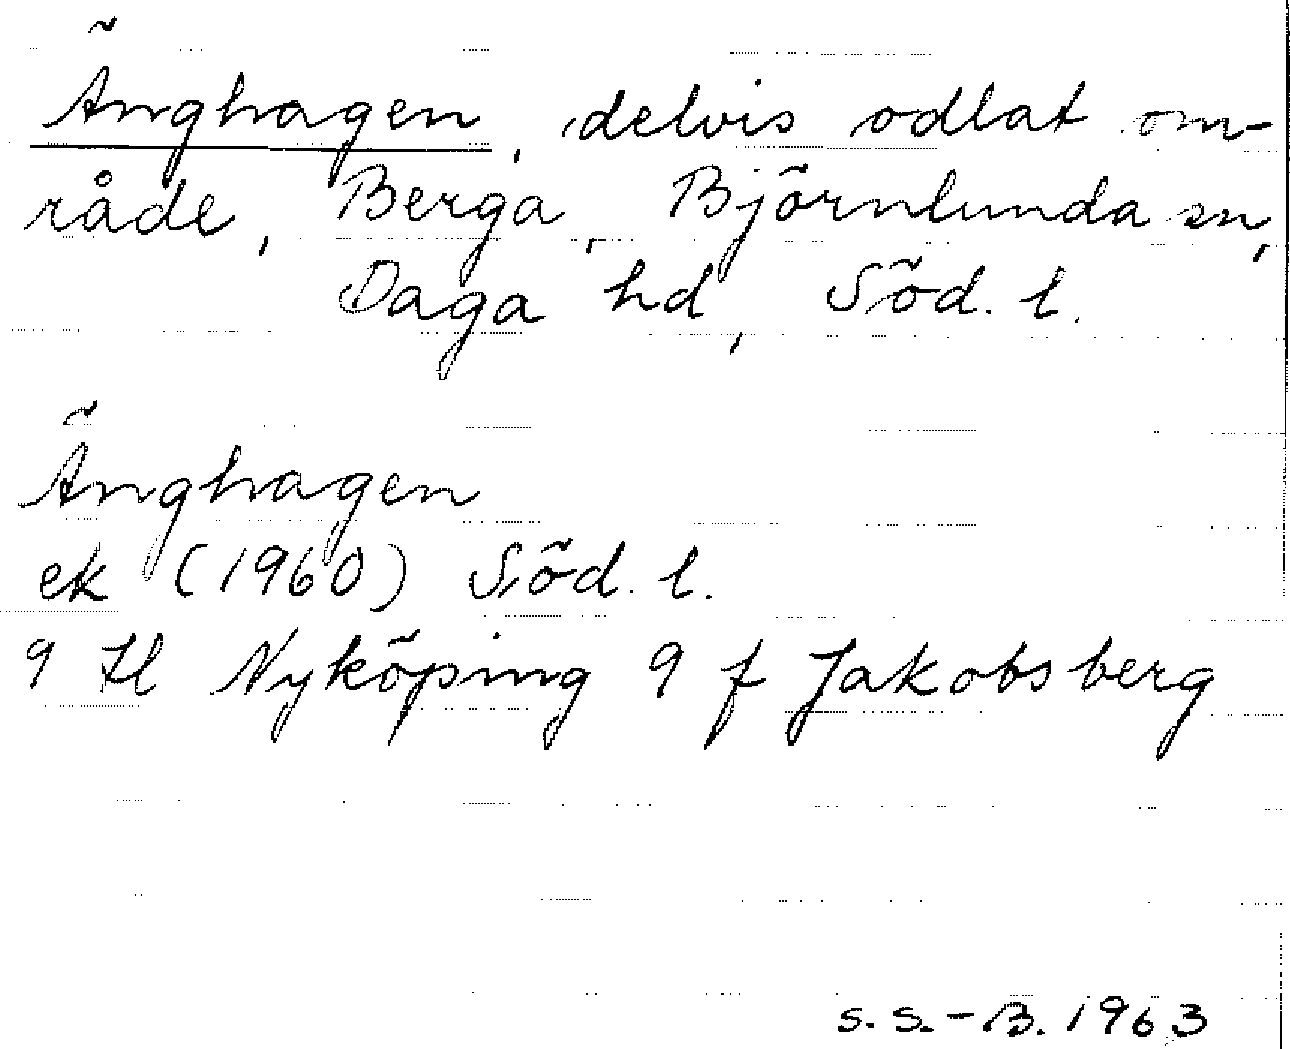 Änghagen, delvis odlat om-
råde, Berga, Björnlunda sn,
Daga hd, Söd. l.
Änghagen
ek (1960) Söd. l.
9 H Nyköping 9 f Jakobsberg
S. S.-B. 1963